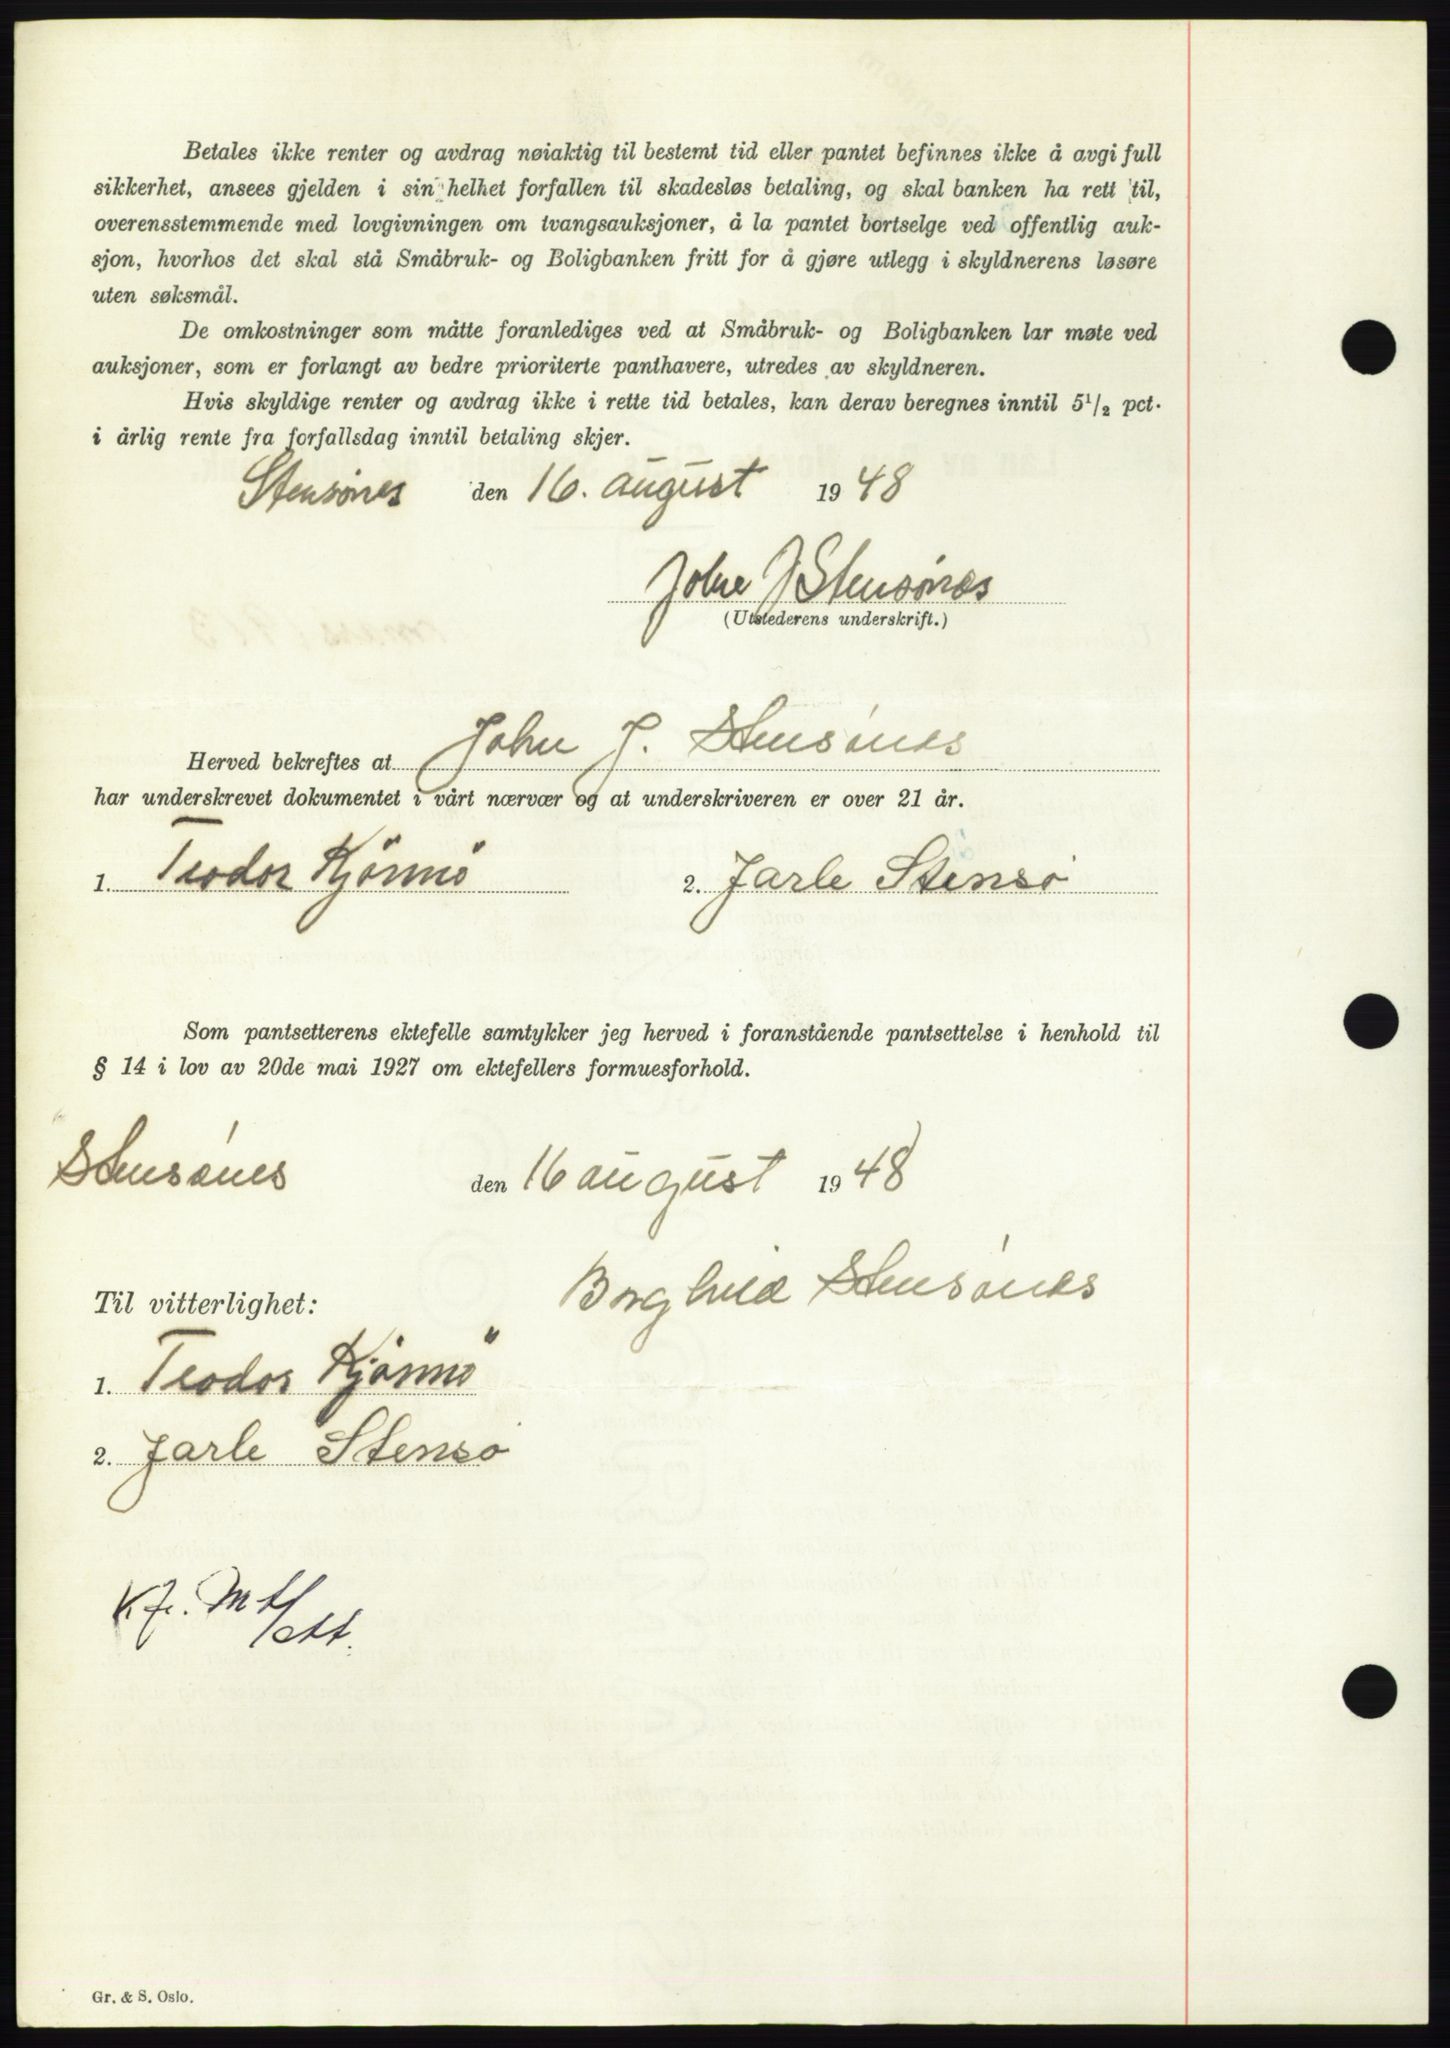 Betales ikke renter og avdrag nøiaktig til bestemt tid eller pantet befinnes ikke å avgi full
sikkerhet, ansees gjelden i sin helhet forfallen til skadesløs betaling, og skal banken ha rett til,
overensstemmende med lovgivningen om tvangsauksjoner, å la pantet bortselge ved offentlig auk-
sjon, hvorhos det skal stå Småbruk- og Boligbanken fritt for å gjøre utlegg i skyldnerens løsøre
uten søksmål.
De omkostninger som måtte foranlediges ved at Småbruk- og Boligbanken lar møte ved
auksjoner, som er forlangt av bedre prioriterte panthavere, utredes av skyldneren.
Hvis skyldige renter og avdrag ikke i rette tid betales, kan derav beregnes inntil 5 1/2 pct.
i årlig rente fra forfallsdag inntil betaling skjer.
Stensønes den 16. august 1948
John J Stensønes
(Utstederens underskrift.)
Herved bekreftes at John J. Stensønes
har underskrevet dokumentet i vårt nærvær og at underskriveren er over 21 år.
1. Teodor Kjönnö 2. Jarle Stensø
Som pantsetterens ektefelle samtykker jeg herved i foranstående pantsettelse i henhold til
§ 14 i lov av 20de mai 1927 om ektefellers formuesforhold.
Stensønes den 16 august 1948
Borghild Stensønes
Til vitterlighet:
1. Teodor Kjönnö
2. Jarle Stensø
Gr. & S. Oslo.